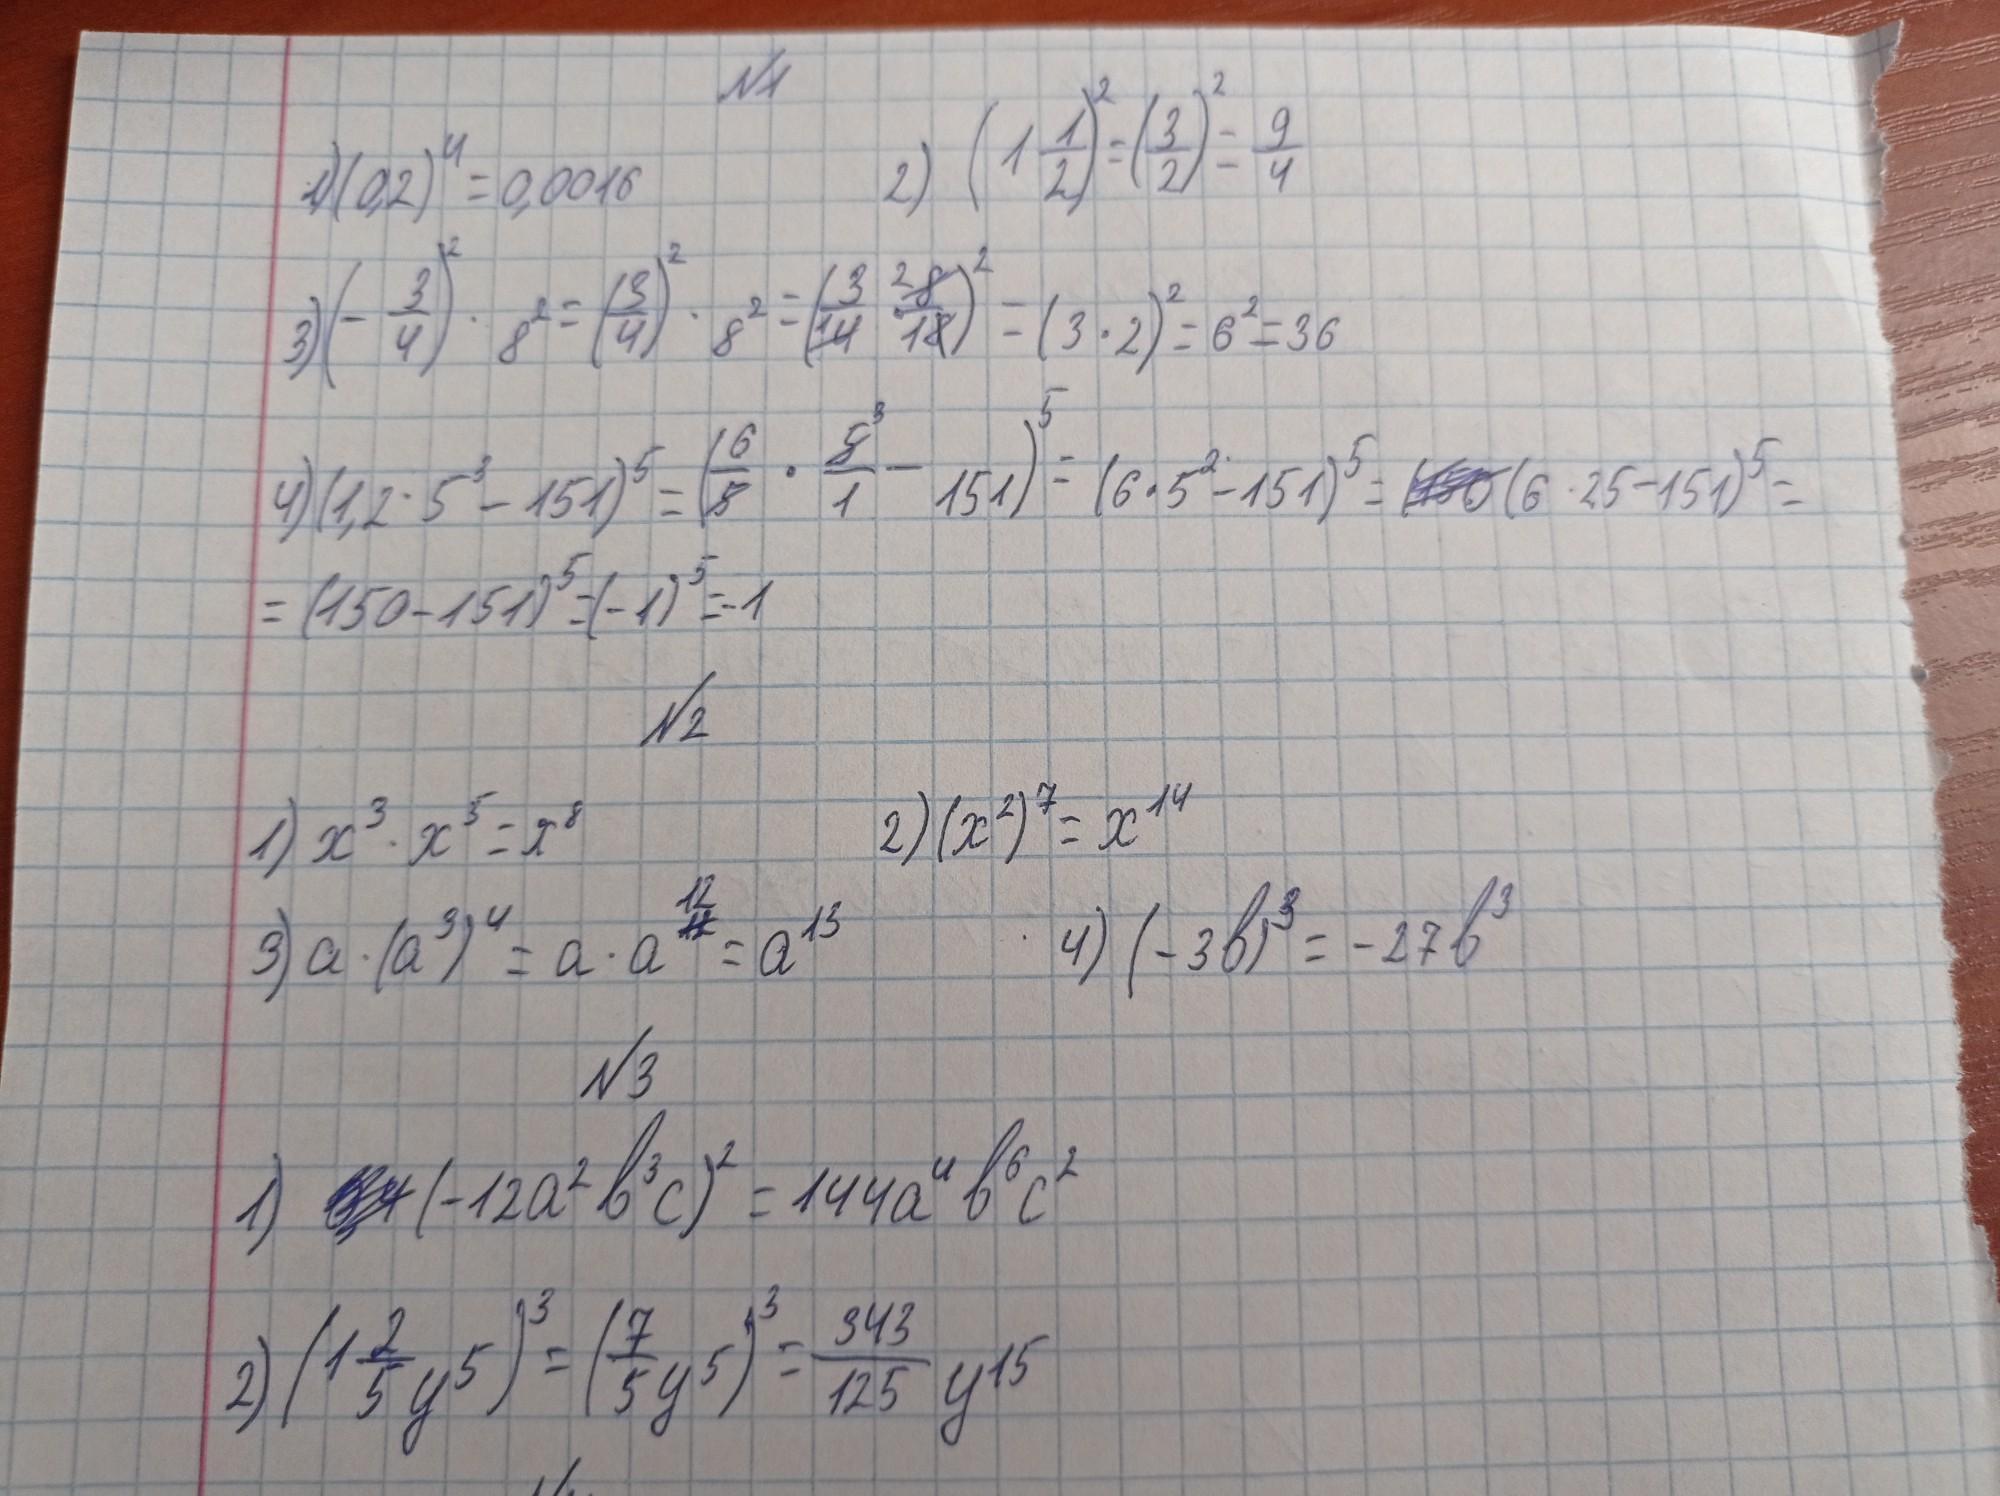 №1
1) (0,2)⁴ = 0,0016 2) (1 1/2)² = (3/2)² = 9/4
3) (-3/4)² · 8² = (3/4)² · 8² = (3/14 · 28/18)² = (3·2)² = 6² = 36
4) (1,2 · 5³ - 151)⁵ = (6/5 · 5³/1 - 151)⁵ = (6·5² - 151)⁵ = (6·25 - 151)⁵ =
= (150 - 151)⁵ = (-1)⁵ = -1
№2
1) x³ · x⁵ = x⁸ 2) (x²)⁷ = x¹⁴
3) a · (a³)⁴ = a · a¹² = a¹³ 4) (-3b)³ = -27b³
№3
1) (-12a²b³c)² = 144a⁴b⁶c²
2) (1 2/5 y⁵)³ = (7/5 y⁵)³ = 343/125 y¹⁵